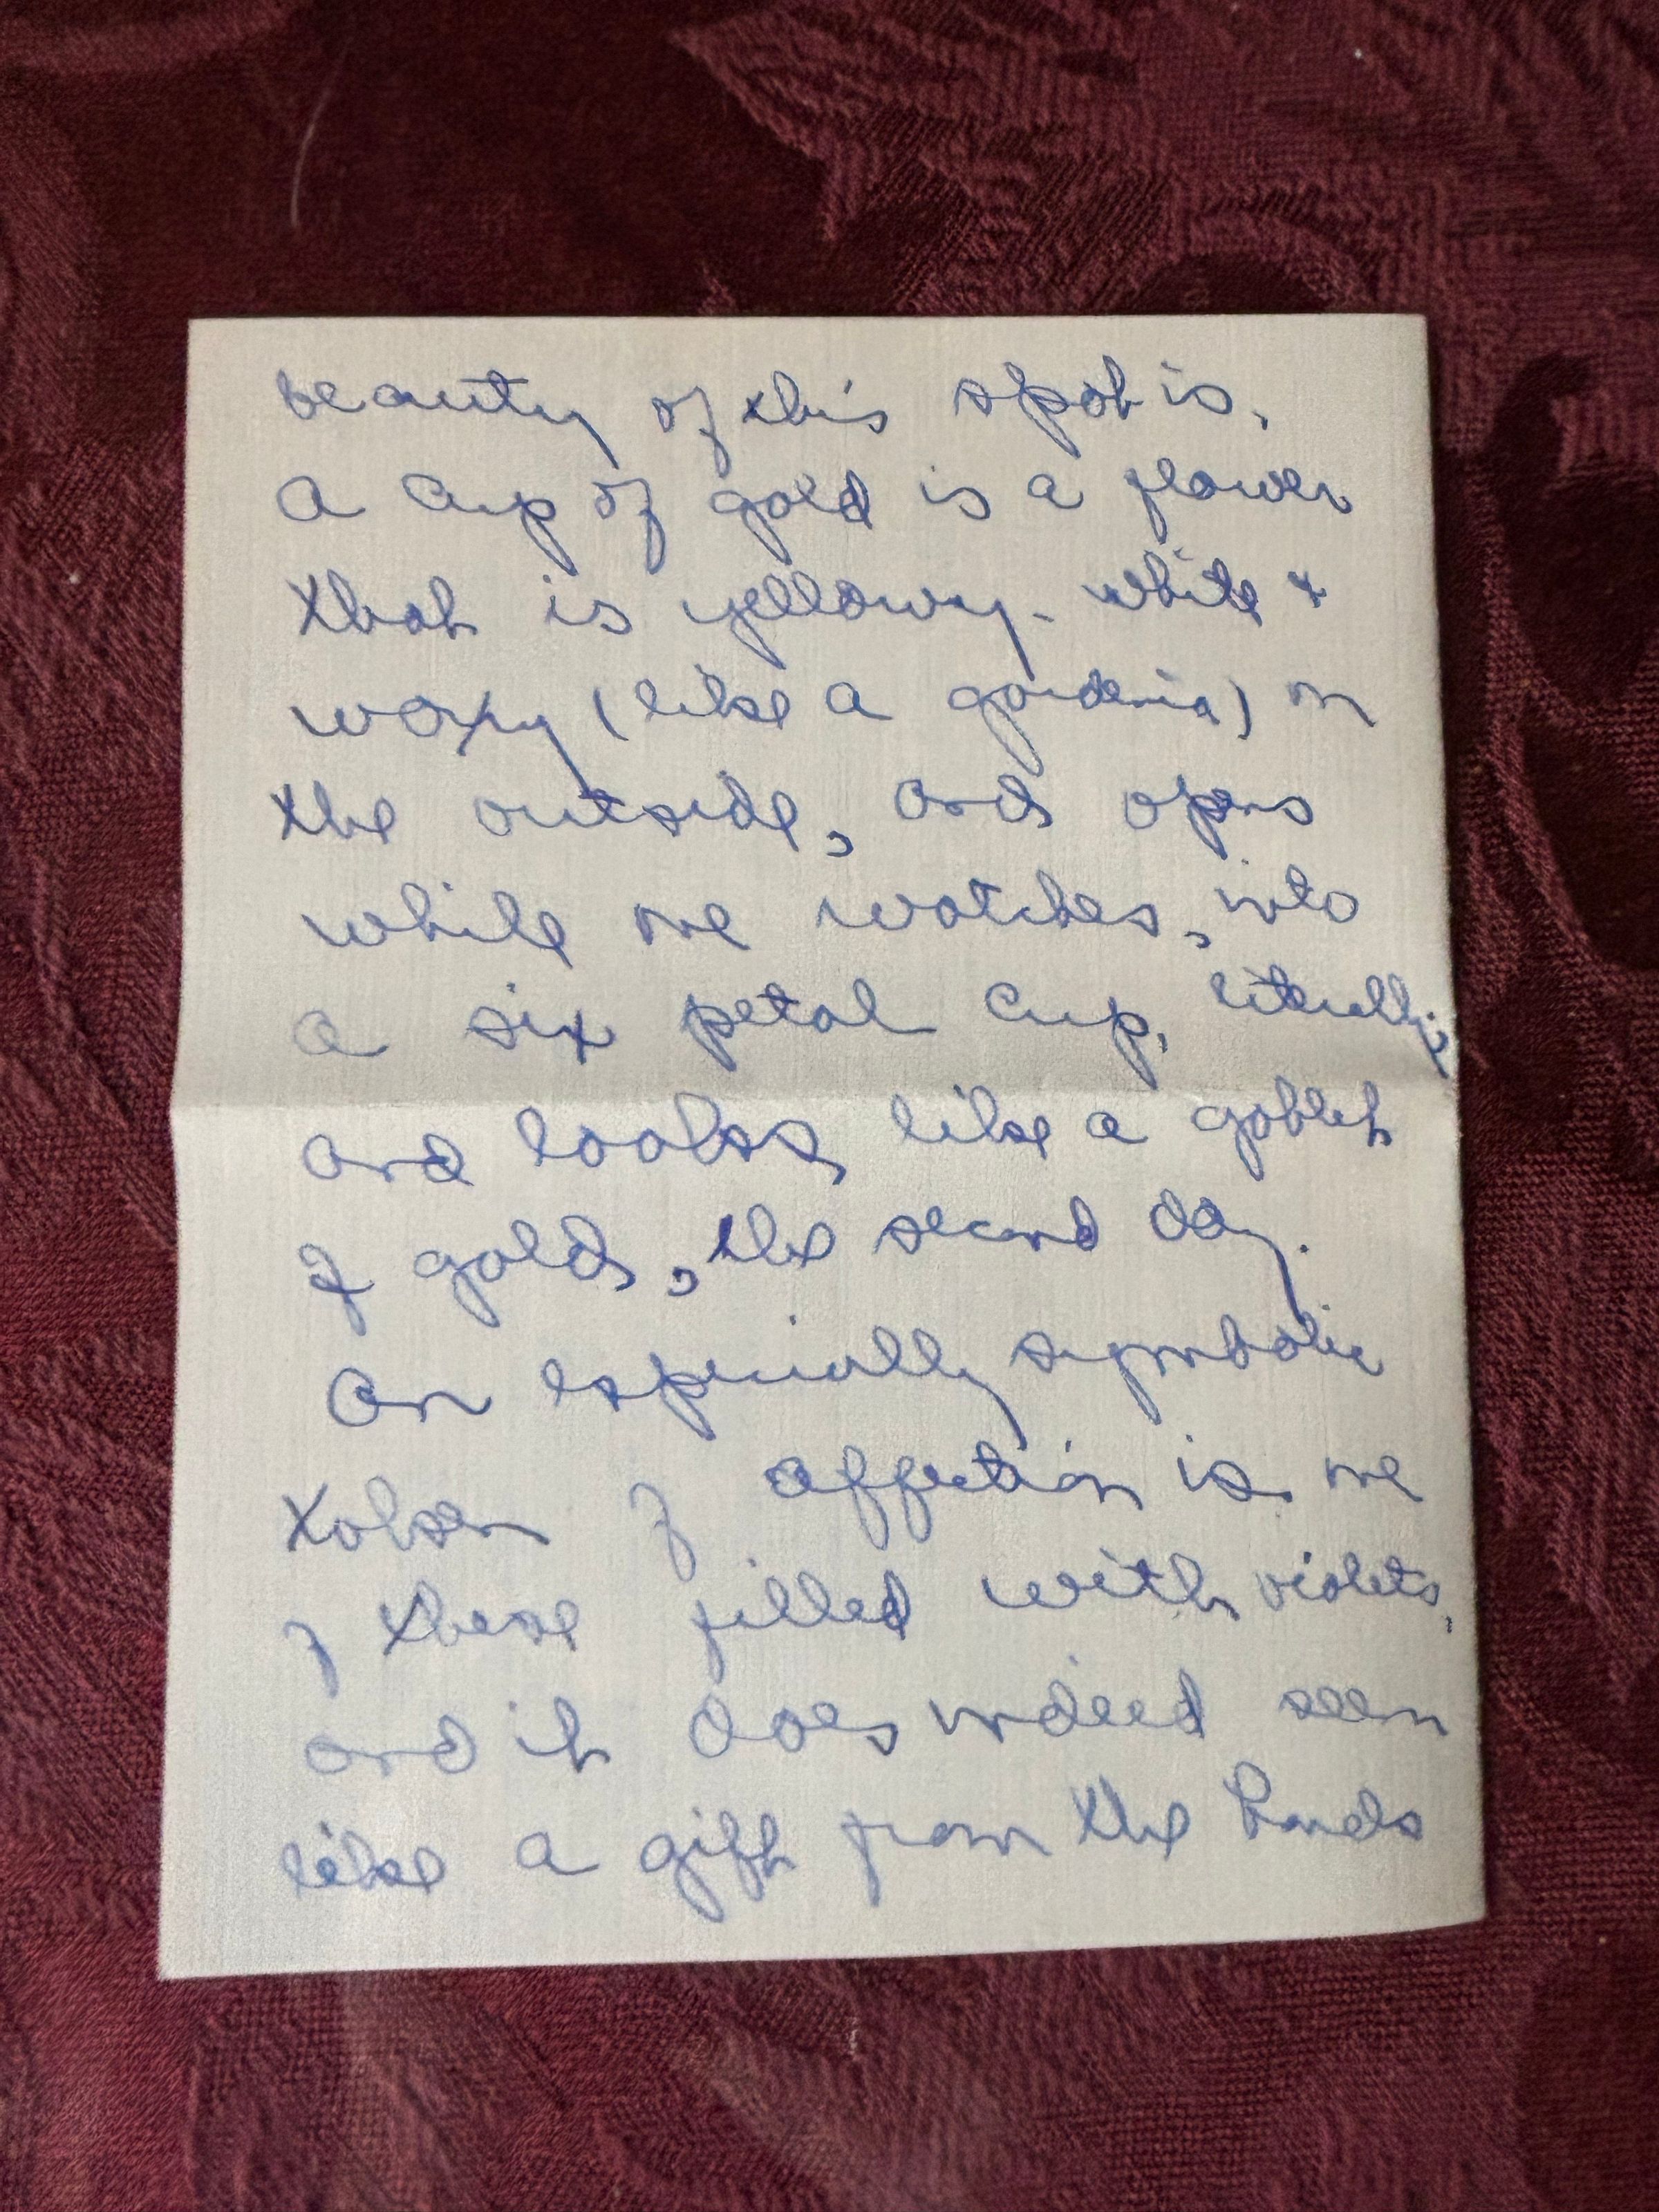 beauty of this spot is.
A cup of gold is a flower
that is yellowy-white &
waxy (like a gardenia) on
the outside, and opens
while one watches, into
a six petal cup, literally,
and looks like a goblet
of gold, the second day.
An especially symbolic
token of affection is one
of these filled with violets,
and it does indeed seem
like a gift from the Hands